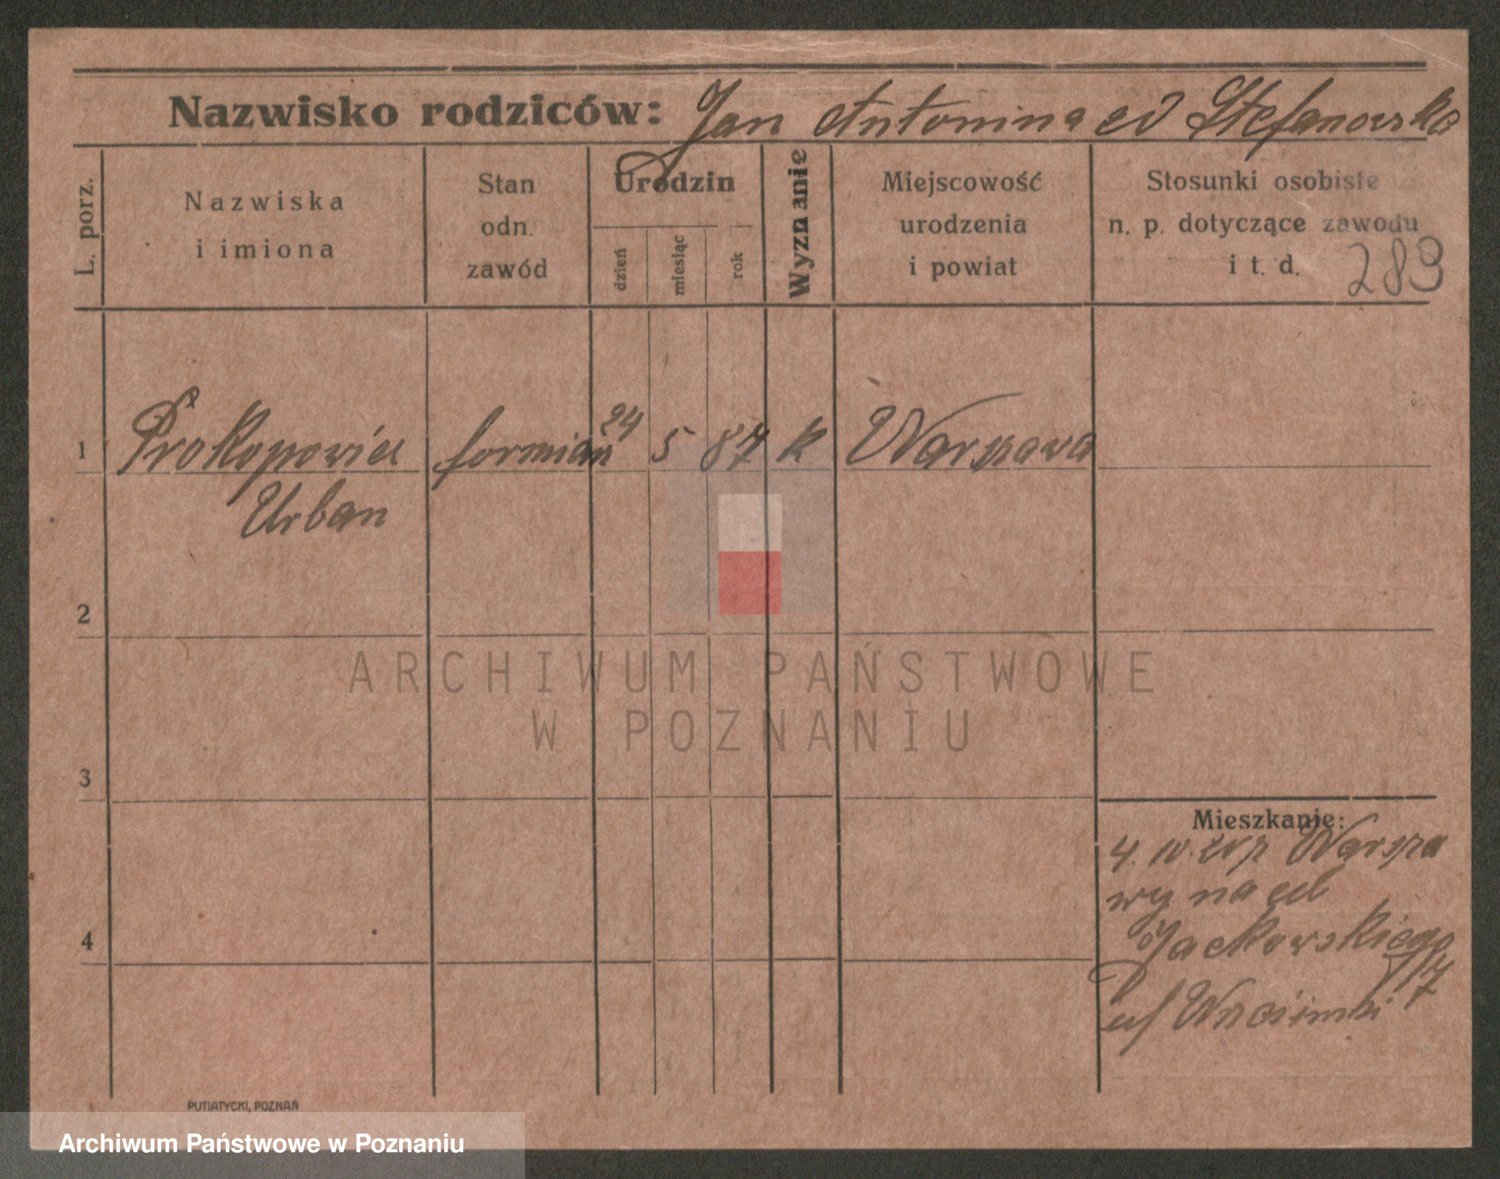 Nazwisko rodziców: Jan Antonina Stefanowska
L. porz.
Nazwiska
i imiona
Stan
odn.
zawód
Urodzin
dzień
miesiąc
rok
Wyznanie
Miejscowość
urodzenia
i powiat
Stosunki osobiste
n. p. dotyczące zawodu
i t. d.
289
1 Prokopowicz formiań 24 5 87 k Warszawa
Urban
2
ARCHIWUM PAŃSTWOWE
W POZNANIU
3
4
Mieszkanie:
4. IV. Warsza
wy na
Jackowskiego
17
PUTIATYCKI, POZNAŃ
Archiwum Państwowe w Poznaniu